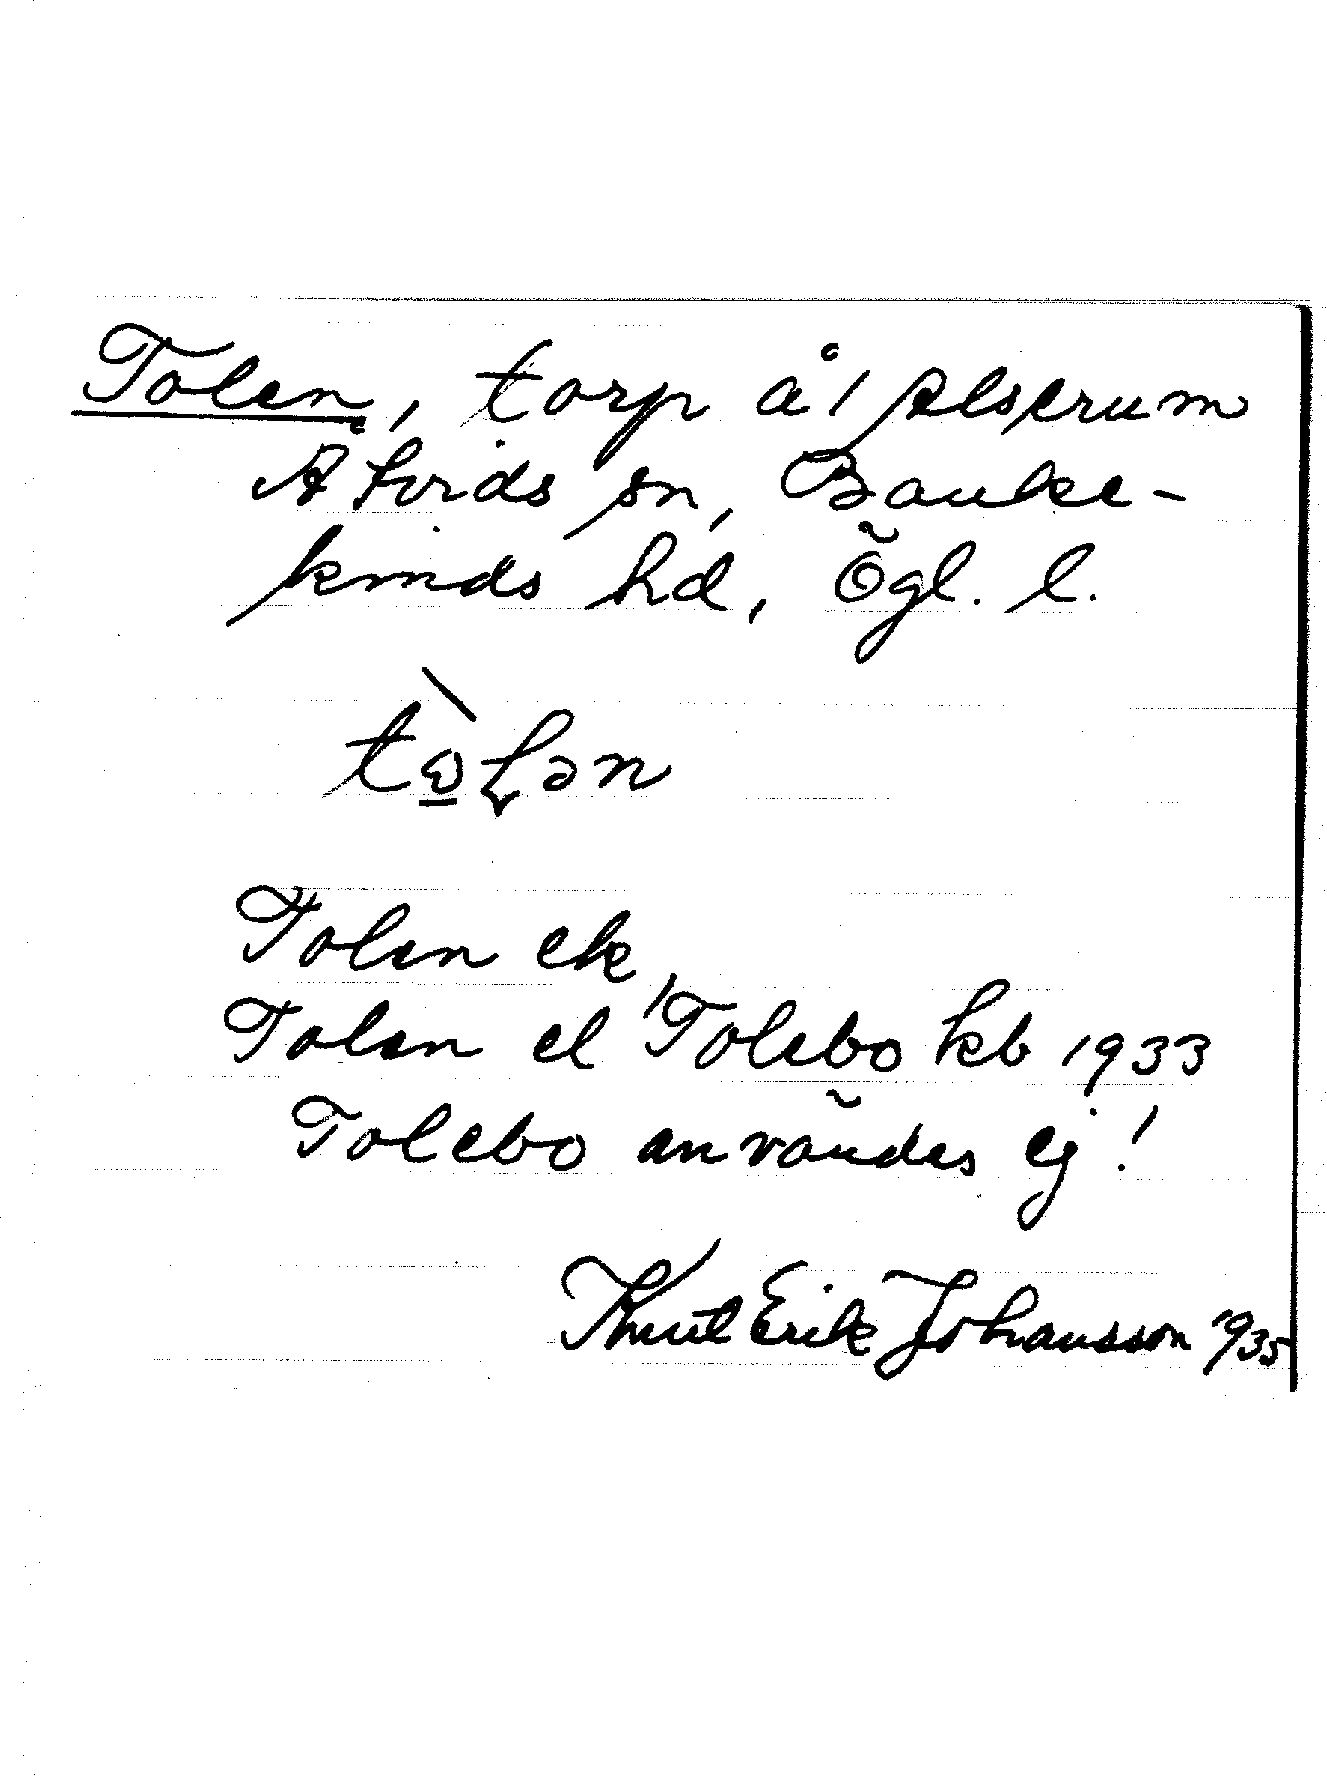 Tolen, torp å 1 Alserum
Åtvids sn, Banke-
kinds hd, Ögl. l.
Tolen ek
Tolen el Tolebo kb 1933
Tolebo användes ej!
Knut Erik Johansson 1935